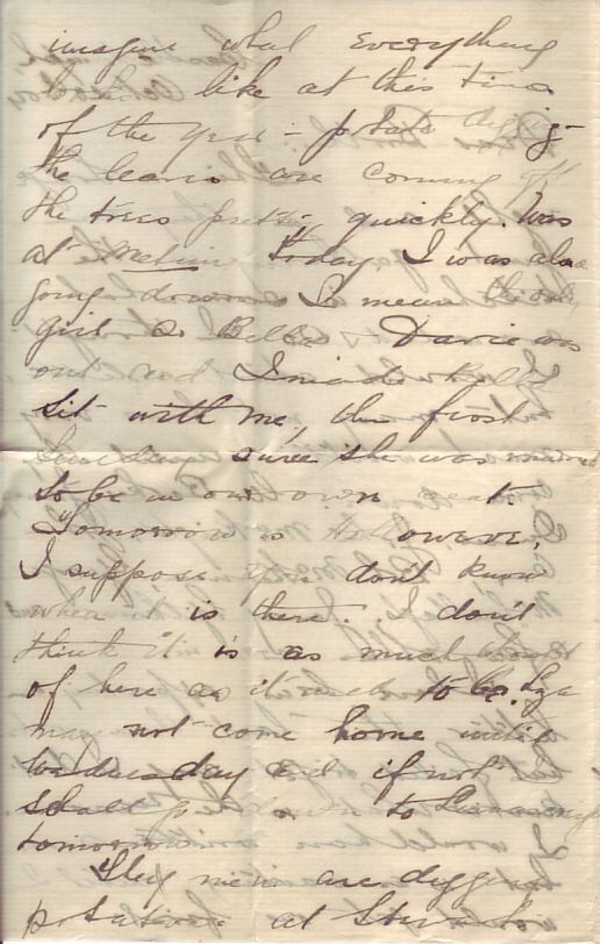 imagine what everything
looks like at this time
of the year - potato digging
the leaves are coming off
the trees pretty quickly. Was
at today, I was also
going down I mean the old
girl & Bella - Davie was
out and I made Bella
sit with me, the first
Sunday since she was married
to be in our own seat.
Tomorrow is Halloween,
I suppose you don't know
when it is there. I don't
think it is as much
of here as it used to be. Liza
may not come home until
Wednesday and if not
shall go down to
tomorrow
They men are digging
potatoes at